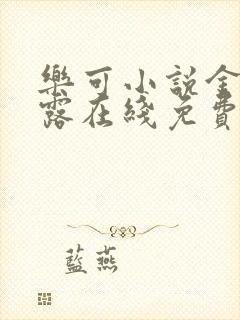 樂可小說金
露在綫免費
藍燕